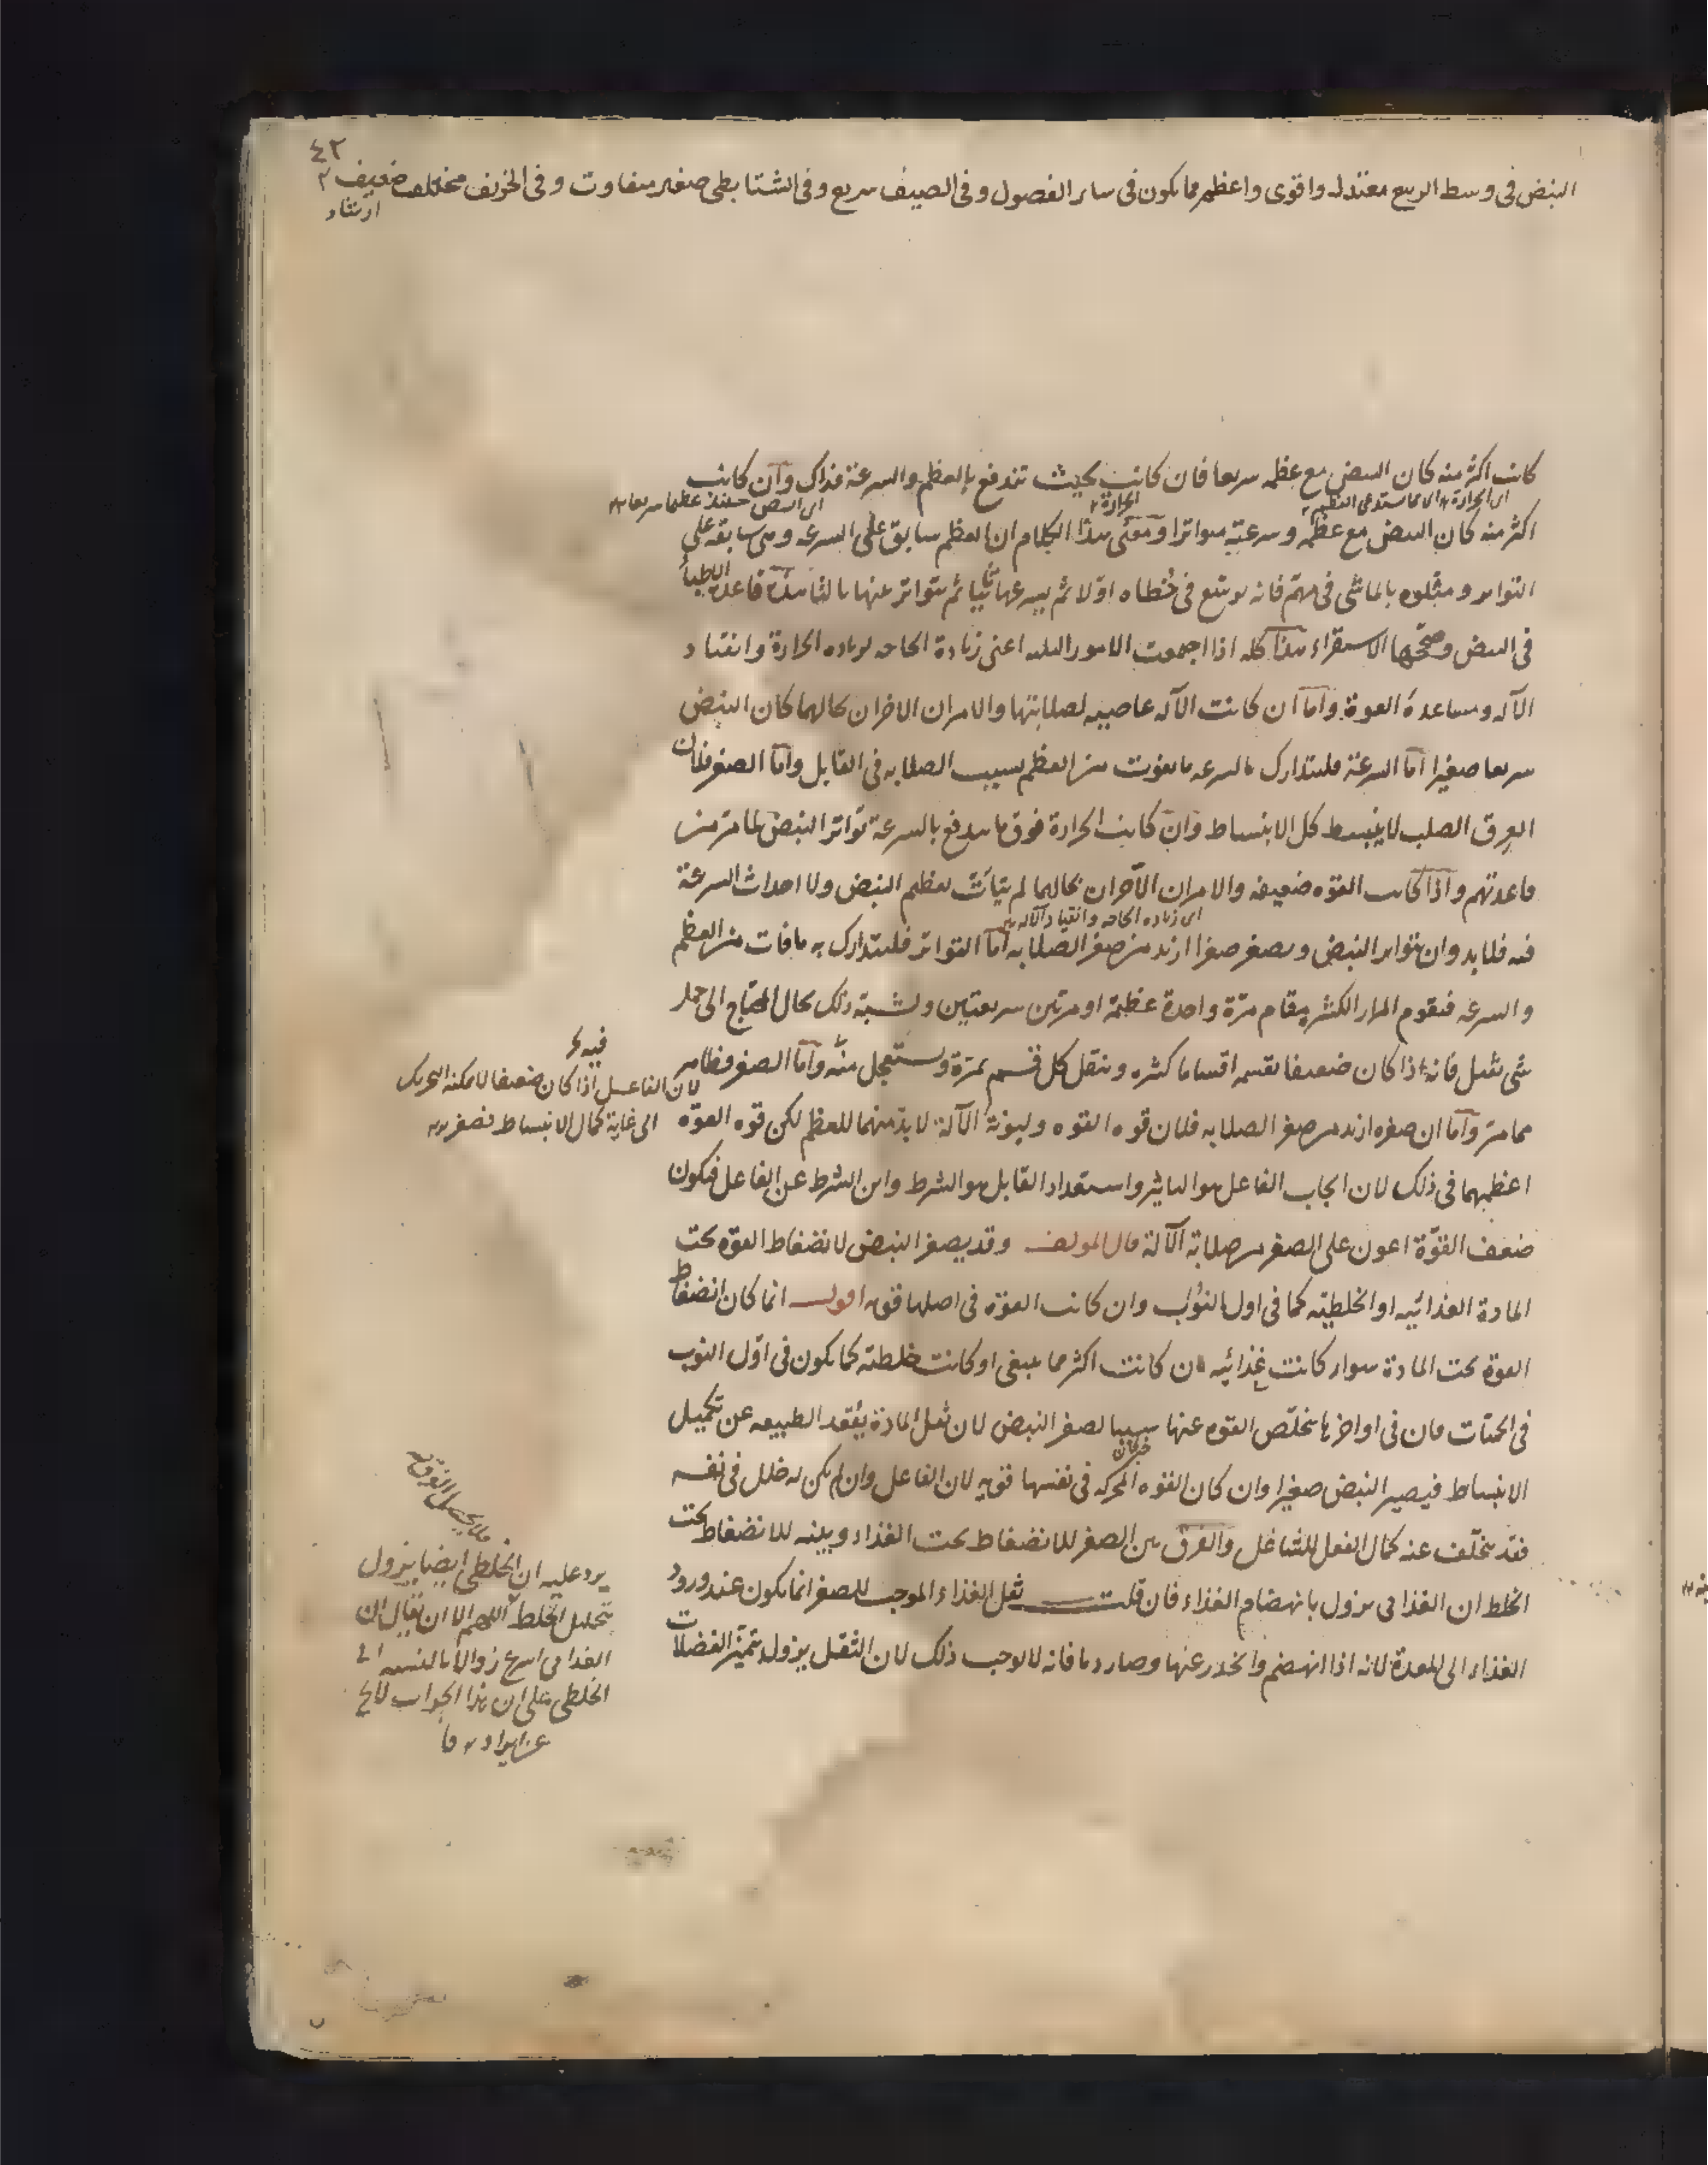 ٤٢
النبض فى وسط الربيع معتدل واقوى واعظم مما يكون فى سائر الفصول وفى الصيف سريع وفى الشتا بطى صغير متفاوت وفى الخريف مختلف ضعيف
ارشاد
كانت اكثر منه كان النبض مع عظمه سريعا فان كانت بحيث تندفع بالعظم والسرعة فذاك وان كانت
اى الحرارة مما يستدعى العظم
الحرارة
اى النبض حينئذ عظيما سريعا
اكثر منه كان النبض مع عظمه وسرعته متواترا ومعنى هذا الكلام ان العظم سابق على السرعه وهى سابقه على
التواتر ومثلوه بالماشى فى مهم فانه يوسع فى خطاه اولا ثم يسرعها ثانيا ثم يتواتر عنها ثالثا هذه قاعدة الاطبأ
فى النبض وصححها الاستقراء هذا كله اذا اجتمعت الامور الثلثه اعنى زيادة الحاجه لزياده الحرارة وانقياد
الآله ومساعدة القوة واما ان كانت الآله عاصيه لصلابتها والامران الاخران بحالهما كان النبض
سريعا صغيرا اما السرعة فليتدارك بالسرعه ما يفوت من العظم بسبب الصلابه فى القابل واما الصغر فلان
العرق الصلب لا ينبسط كل الانبساط وان كانت الحرارة فوق ما يندفع بالسرعة تواتر النبض لما مر من
قاعدتهم واذا كانت القوه ضعيفه والامران الآخران بحالهما لم يتأت تعظيم النبض ولا احداث السرعة
اى زياده الحاجه وانقياد الآله
فيه فلا بد وان يتواتر النبض ويصغر صغرا ازيد من صغر الصلابه اما التواتر فليتدارك به ما فات من العظم
والسرعه فتقوم المرار الكثيره مقام مرة واحدة عظيمة او مرتين سريعتين ويشبه ذلك بحال المحتاج الى حمل
شى ثقيل فانه اذا كان ضعيفا يقسمه اقساما كثيره وينقل كل قسم بمرة ويستعجل منه واما الصغر فظاهر
مما مر واما ان صغره ازيد من صغر الصلابه فلان قوه القوه وليونة الآلة لا بد منهما للعظم لكن قوه القوه
اعظمهما فى ذلك لان ايجاب الفاعل هو التاثير واستعداد القابل هو الشرط واين الشرط عن الفاعل فيكون
ضعف القوة اعون على الصغر من صلابة الآلة قال المولف وقد يصغر النبض لانضغاط القوه تحت
المادة الغذائيه او الخلطيه كما فى اول النوب وان كانت القوه فى اصلها قويه اقول انما كان انضغاط
القوة تحت المادة سواء كانت غذائيه ان كانت اكثر مما ينبغى او كانت خلطيه كما يكون فى اول النوب
فى الحميات فان فى اواخرها يتخلص القوه عنها سببا لصغر النبض لان ثقل المادة يقعد الطبيعه عن تكميل
خبر كان
الانبساط فيصير النبض صغيرا وان كان القوه المحركه فى نفسها قويه لان الفاعل وان لم يكن به خلل فى نفسه
فقد يتخلف عنه كمال الفعل للشاغل والفرق بين الصغر للانضغاط تحت الغذاء وبينه للانضغاط تحت
الخلط ان الغذائى يزول بانهضام الغذاء فان قلت ثقل الغذاء الموجب للصغر انما يكون عند ورود
الغذاء الى المعدة لانه اذا انهضم وانحدر عنها وصار دما فانه لا يوجب ذلك لان الثقل يزول بتميز الفضلات
لان الفاعل اذا كان ضعيفا لا يمكنه التحريك
الى غاية كمال الانبساط فصغر
فلا يحصل الفرق
يرد عليه ان الخلطى ايضا يزول
بتحليل الخلط اللهم الا ان يقال ان
الغذائى اسرع زوالا بالنسبه الى
الخلطى على ان هذا الجواب